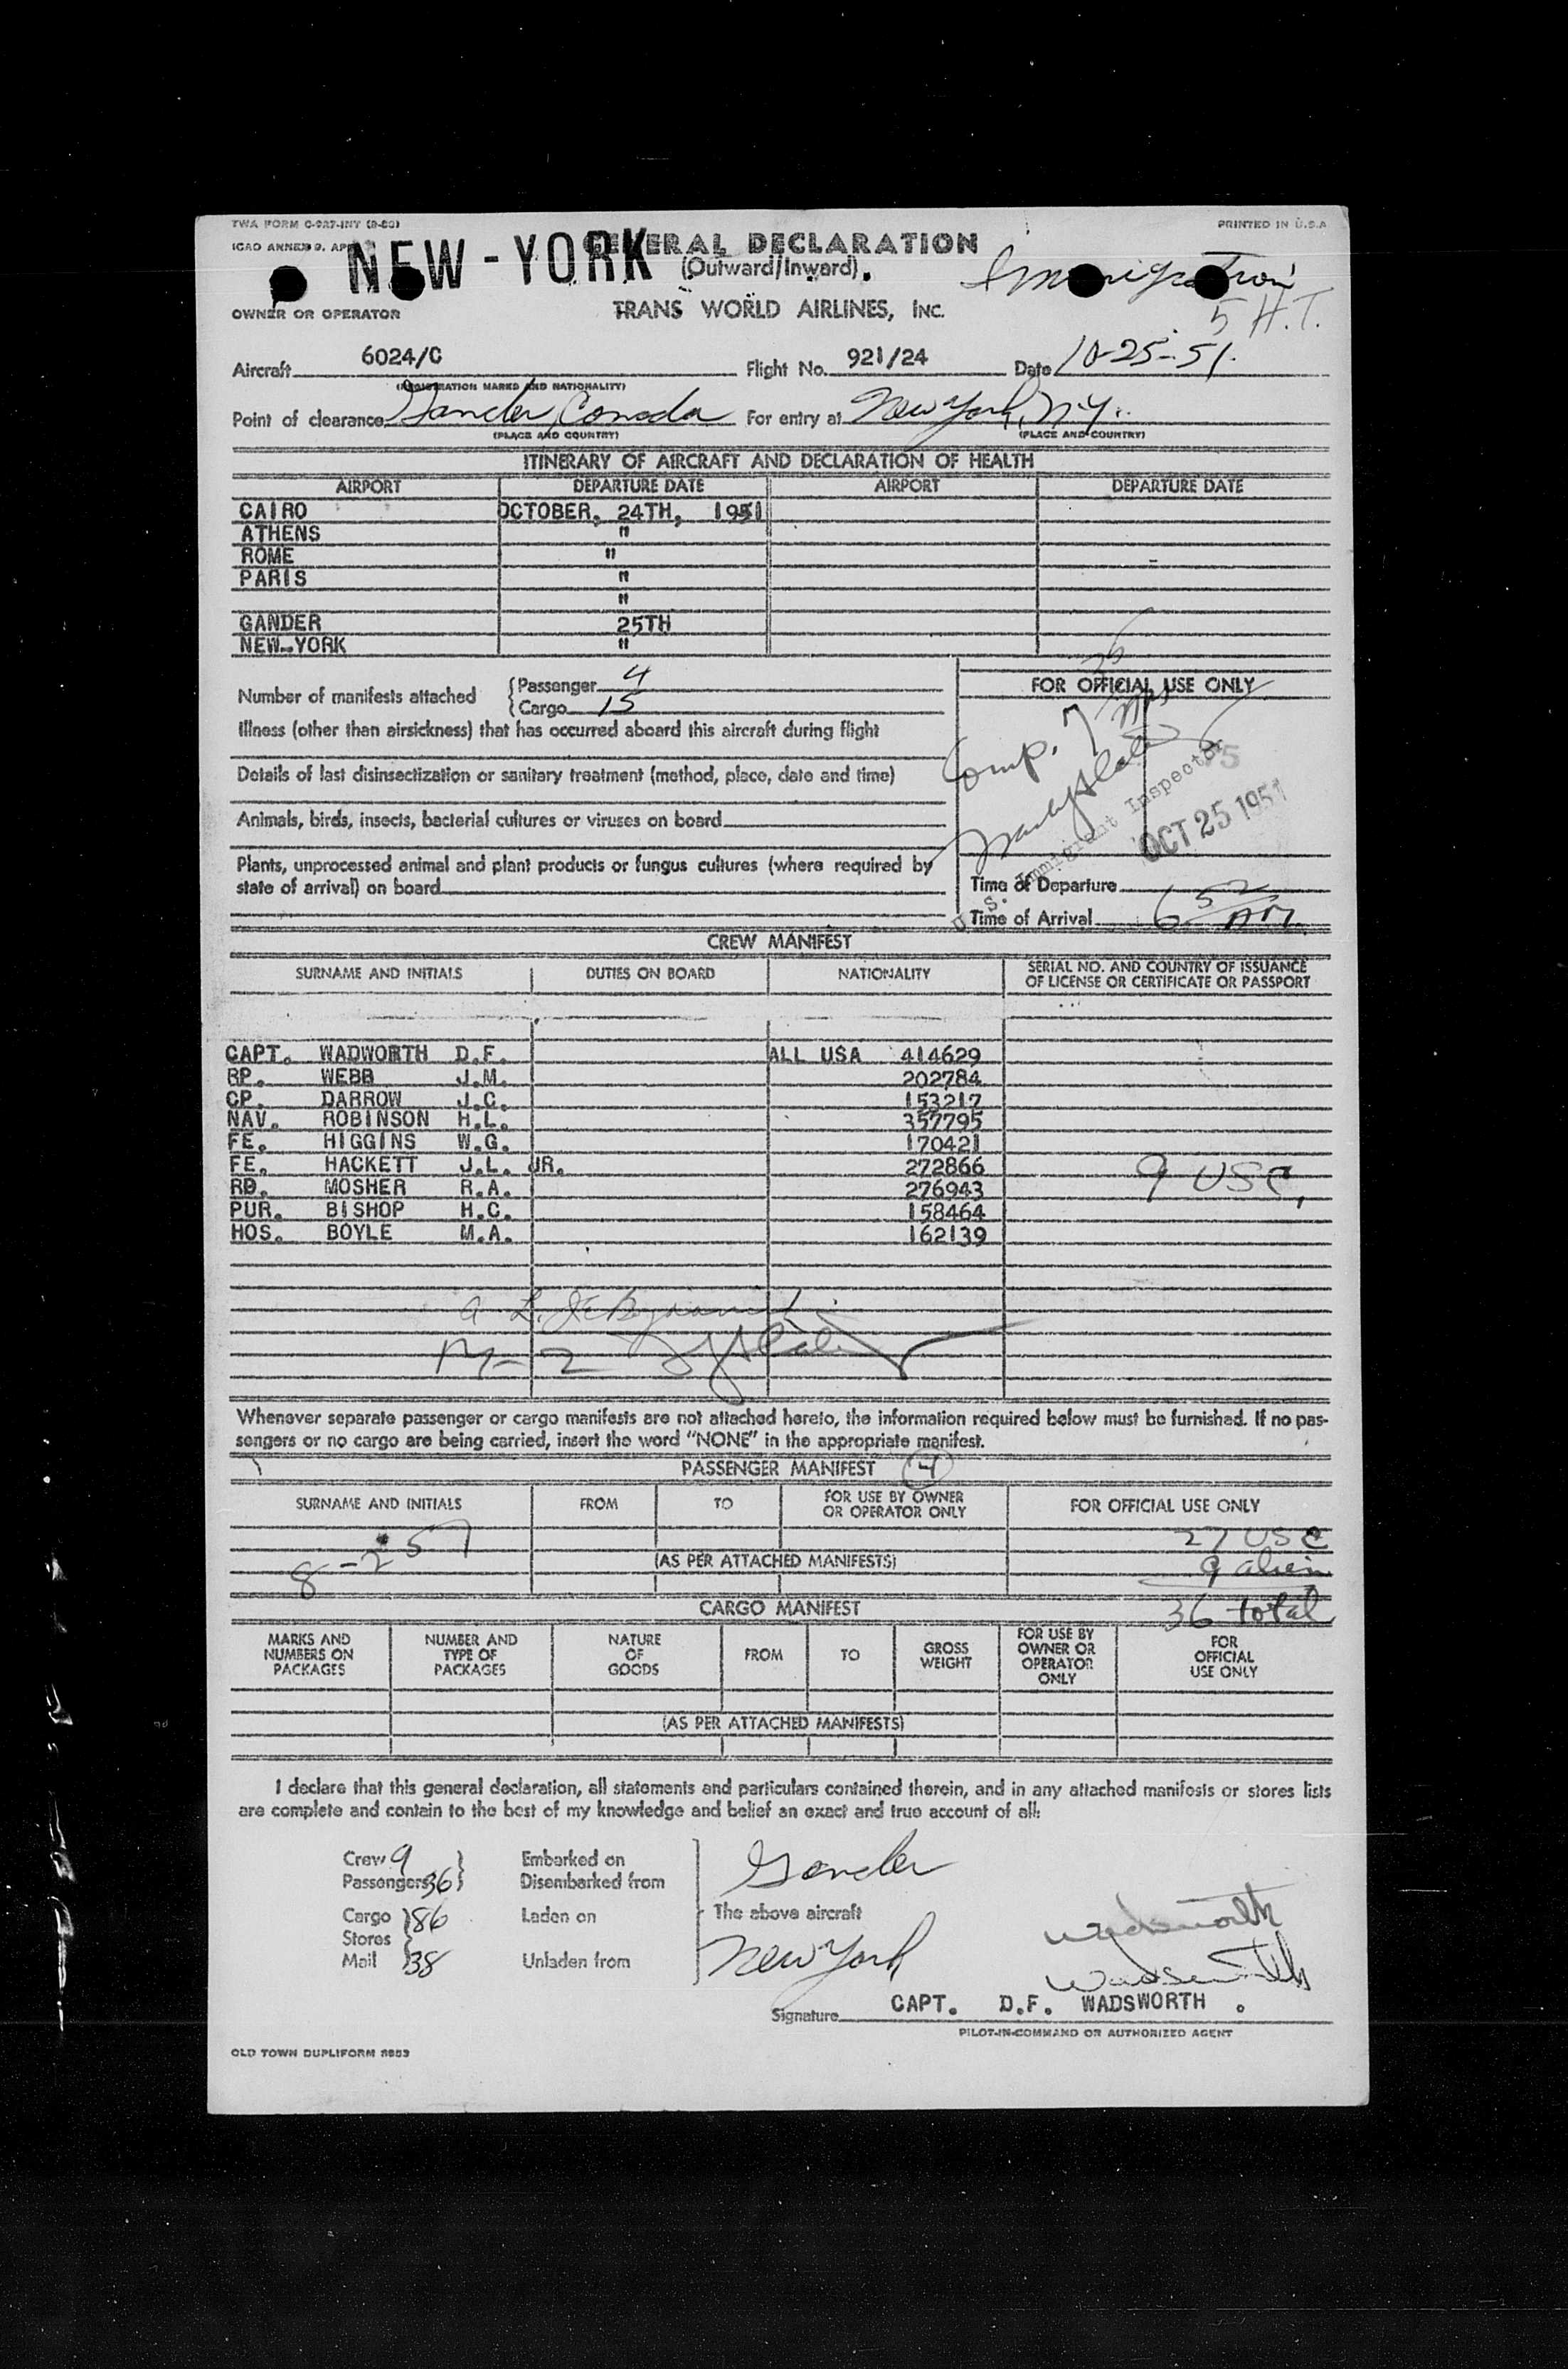 TWA FORM C-927-INT
PRINTED IN U.S.A
ICAO ANNEX 9. AP
NEW-YORK
GENERAL DECLARATION
(Outward/Inward).
Immigration
5 H.T.
OWNER OR OPERATOR TRANS WORLD AIRLINES, INC.
Aircraft 6024/C Flight No. 921/24 Date 10-25-51.
(REGISTRATION MARKS AND NATIONALITY)
Point of clearance Gander, Canada For entry at New York, N.Y.
(PLACE AND COUNTRY) (PLACE AND COUNTRY)
ITINERARY OF AIRCRAFT AND DECLARATION OF HEALTH
AIRPORT DEPARTURE DATE AIRPORT DEPARTURE DATE
CAIRO OCTOBER, 24TH, 1951
ATHENS "
ROME "
PARIS "
"
GANDER 25TH
NEW-YORK "
Number of manifests attached { Passenger 4
{ Cargo 15
FOR OFFICIAL USE ONLY
Illness (other than airsickness) that has occurred aboard this aircraft during flight
Comp. 7
Details of last disinsectization or sanitary treatment (method, place, date and time)
Animals, birds, insects, bacterial cultures or viruses on board
U.S. Immigrant Inspector 75
OCT 25 1951
Plants, unprocessed animal and plant products or fungus cultures (where required by
state of arrival) on board
Time of Departure
Time of Arrival 6 52 AM.
CREW MANIFEST
SURNAME AND INITIALS DUTIES ON BOARD NATIONALITY SERIAL NO. AND COUNTRY OF ISSUANCE
OF LICENSE OR CERTIFICATE OR PASSPORT
CAPT. WADWORTH D.F. ALL USA 414629
RP. WEBB J.M. 202784
CP. DARROW J.C. 153217
NAV. ROBINSON H.L. 357795
FE. HIGGINS W.G. 170421
FE. HACKETT J.L. JR. 272866 9 USC,
RD. MOSHER R.A. 276943
PUR. BISHOP H.C. 158464
HOS. BOYLE M.A. 162139
M-2
Whenever separate passenger or cargo manifests are not attached hereto, the information required below must be furnished. If no pas-
sengers or no cargo are being carried, insert the word "NONE" in the appropriate manifest.
PASSENGER MANIFEST 4
SURNAME AND INITIALS FROM TO FOR USE BY OWNER
OR OPERATOR ONLY FOR OFFICIAL USE ONLY
27 USC
8-257 (AS PER ATTACHED MANIFESTS) 9 alien
CARGO MANIFEST 36 total
MARKS AND
NUMBERS ON
PACKAGES NUMBER AND
TYPE OF
PACKAGES NATURE
OF
GOODS FROM TO GROSS
WEIGHT FOR USE BY
OWNER OR
OPERATOR
ONLY FOR
OFFICIAL
USE ONLY
(AS PER ATTACHED MANIFESTS)
I declare that this general declaration, all statements and particulars contained therein, and in any attached manifests or stores lists
are complete and contain to the best of my knowledge and belief an exact and true account of all:
Crew 9 Embarked on Gander
Passengers 36 Disembarked from
Cargo 186 Laden on The above aircraft Wadsworth
Stores
Mail 38 Unladen from New York Wadsworth
Signature CAPT. D.F. WADSWORTH .
PILOT-IN-COMMAND OR AUTHORIZED AGENT
OLD TOWN DUPLIFORM